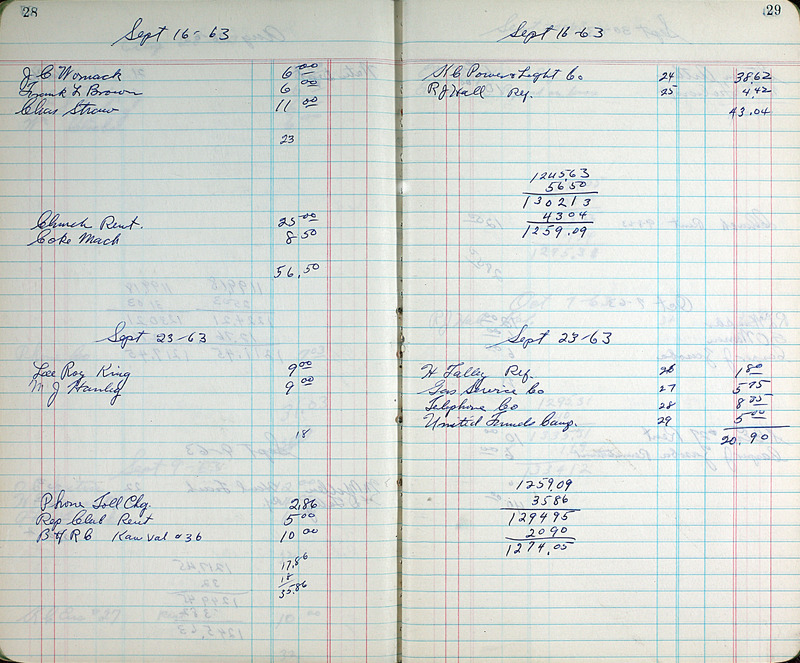 28
Sept 16-63
J C Womack 6 00
Frank L Brown 6 00
Chas Straw 11 00
23
Church Rent. 25 00
Coke Mach 8 50
56.50
Sept 23-63
Lee Roy King 9 00
M J Hanley 9 00
18
Phone Toll Chg. 2.86
Rep Club Rent 5 00
B of R C Kaw Val #36 10 00
17.86
18
35.86
29
Sept 16-63
K C Power & Light Co 24 38.62
R J Hall Ref. 25 4.42
43.04
1245.63
56.50
1302 13
43 04
1259.09
Sept 23-63
H Talley Ref. 26 1 80
Gas Service Co 27 5 75
Telephone Co 28 8 35
United Funds Camp. 29 5 00
20.90
1259.09
35 86
1294 95
20 90
1274.05